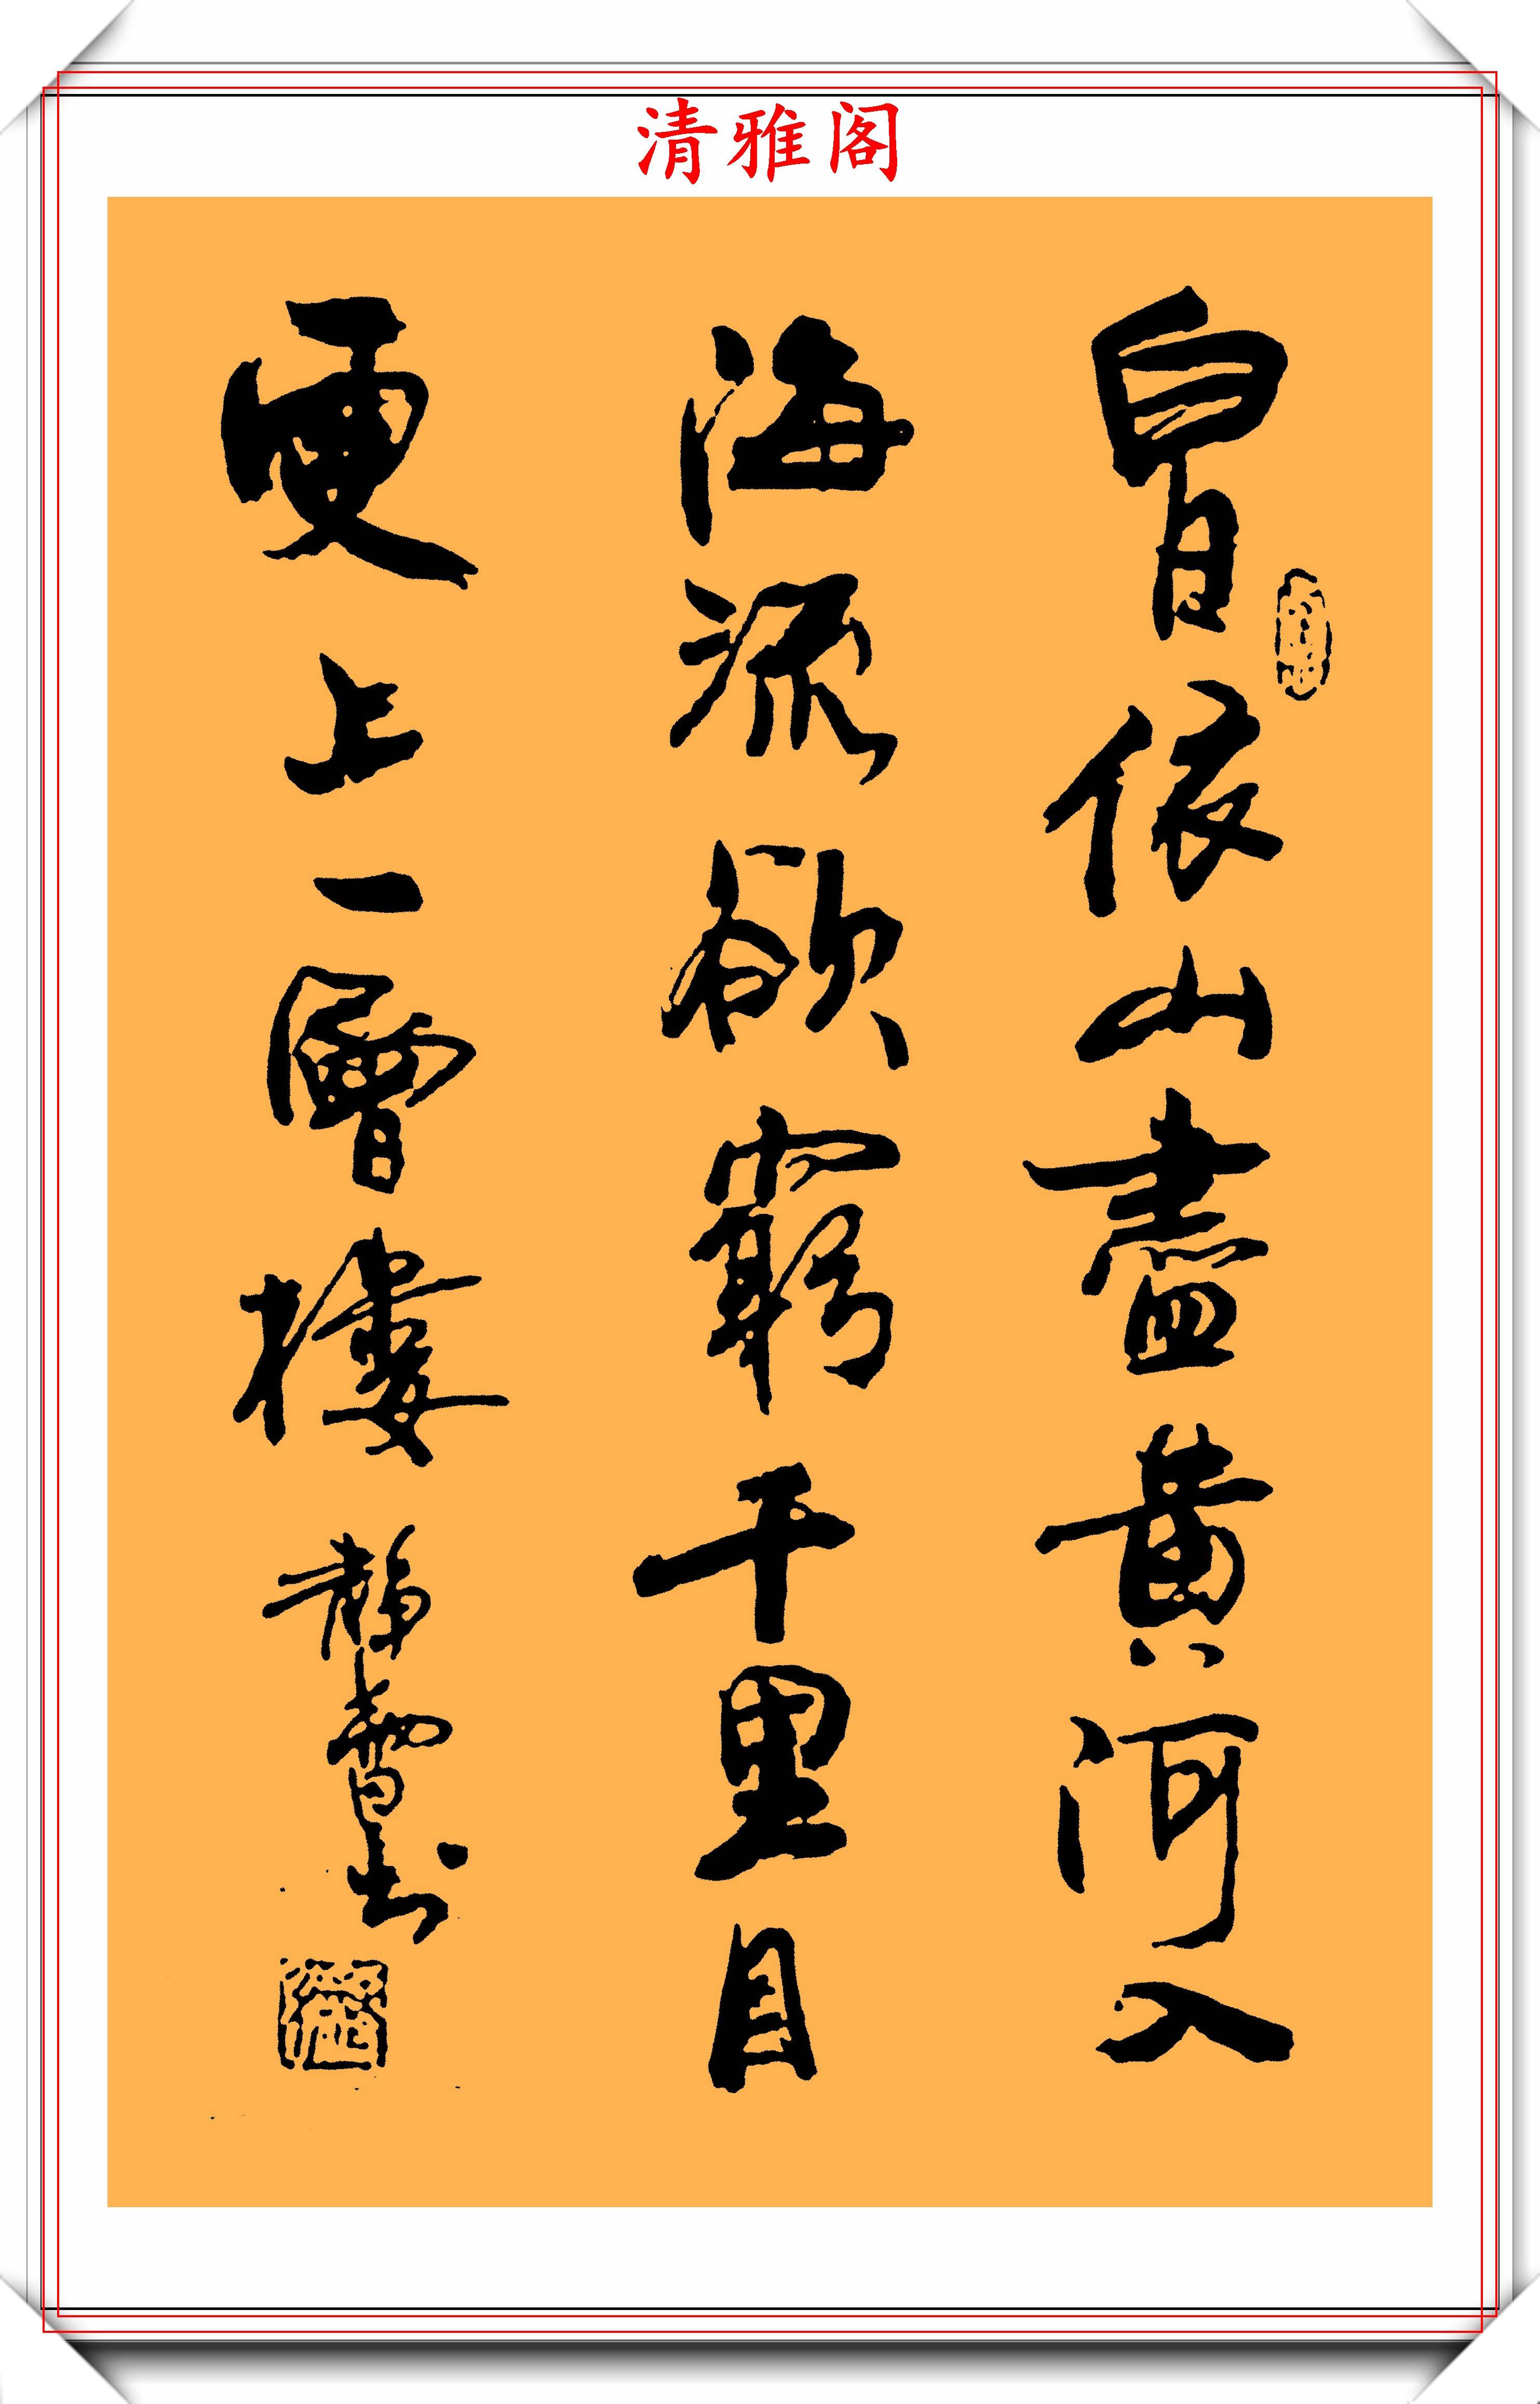 清雅阁
白日依山盡黃河入
海流欲窮千里目
更上一層樓
書